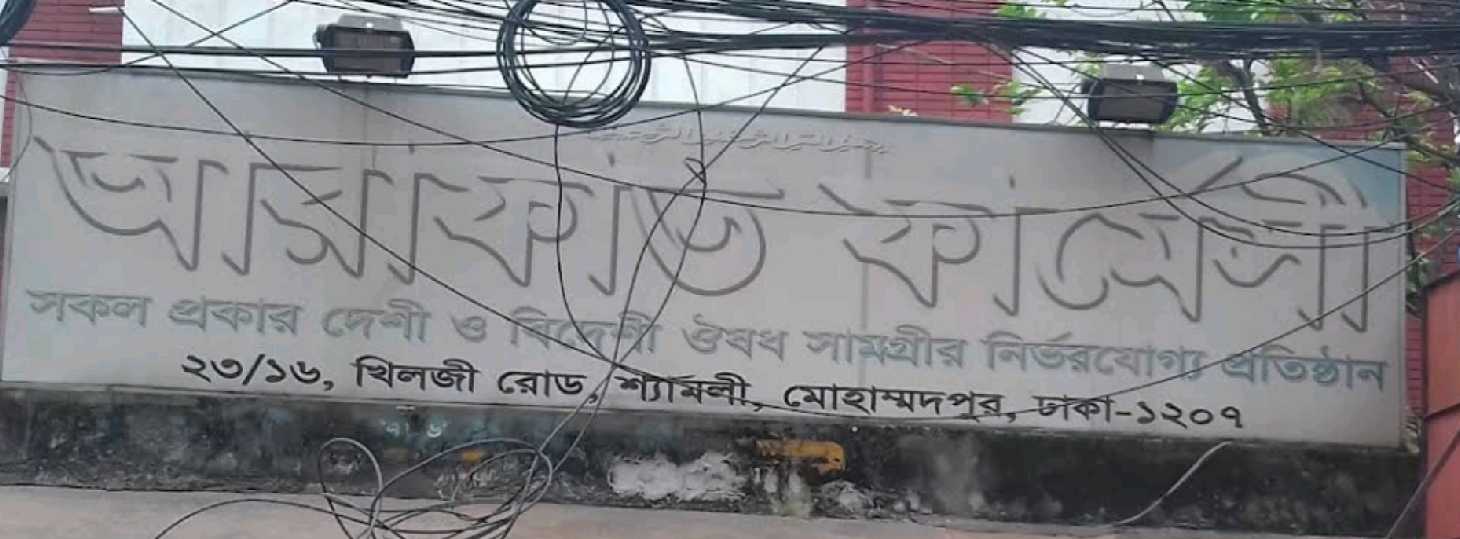 আরাফাত ফার্মেসী
সকল প্রকার দেশী ও বিদেশী ঔষধ সামগ্রীর নির্ভরযোগ্য প্রতিষ্ঠান
২৩/১৬, খিলজী রোড, শ্যামলী, মোহাম্মদপুর, ঢাকা-১২০৭